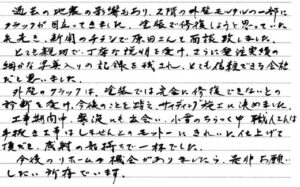 過去の地震の影響もあり、2階の外壁モルタルの一部に
クラックが目立ってきました。塗装で修復しようと思っていた
矢先き、新聞のチラシで原田さんと面談致しました。
とても親切で、丁寧な説明を受け、さらに発注実績の
細かな写真入りの記録を残され、とても信頼できる会社
だと思いました。
外壁のクラックは、塗装では完全に修復できないとの
診断を受け、今後のことも踏え、サイディング施工に決めました。
工事期間中、寒波にも出会い、小雪のちらつく中、職人さんは
手抜き工事はしませんとのモットーに、きれいに仕上げて
頂だき、感謝の気持ちで一杯でした。
今後のリホームの機会がありましたら、是非お願い
したい所存でいます。